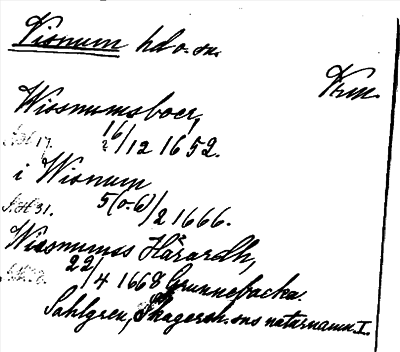 Visnum hd o. sn.
Vrm.
Wissnumsboer,
16/12 1652.
i Wisnum
5(o.6)/2 1666.
Wissnumss Häraredh,
22/4 1668 Grunnebacka.
Sahlgren, Skagersh. sns naturnamn I.